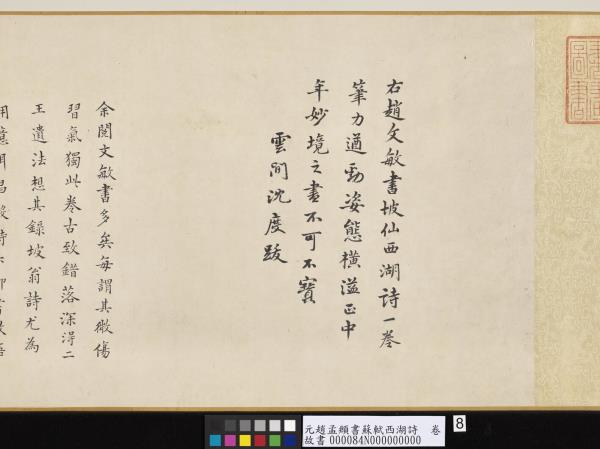 右趙文敏書坡仙西湖詩一卷
筆力遒勁姿態橫溢正中
年妙境之書不可不寶
雲間沈度跋
余閱文敏書多矣每謂其微傷
習氣獨此卷古致錯落深得二
王遺法想其錄坡翁詩尤為
元趙孟頫書蘇軾西湖詩 卷
故書 000084N000000000
8